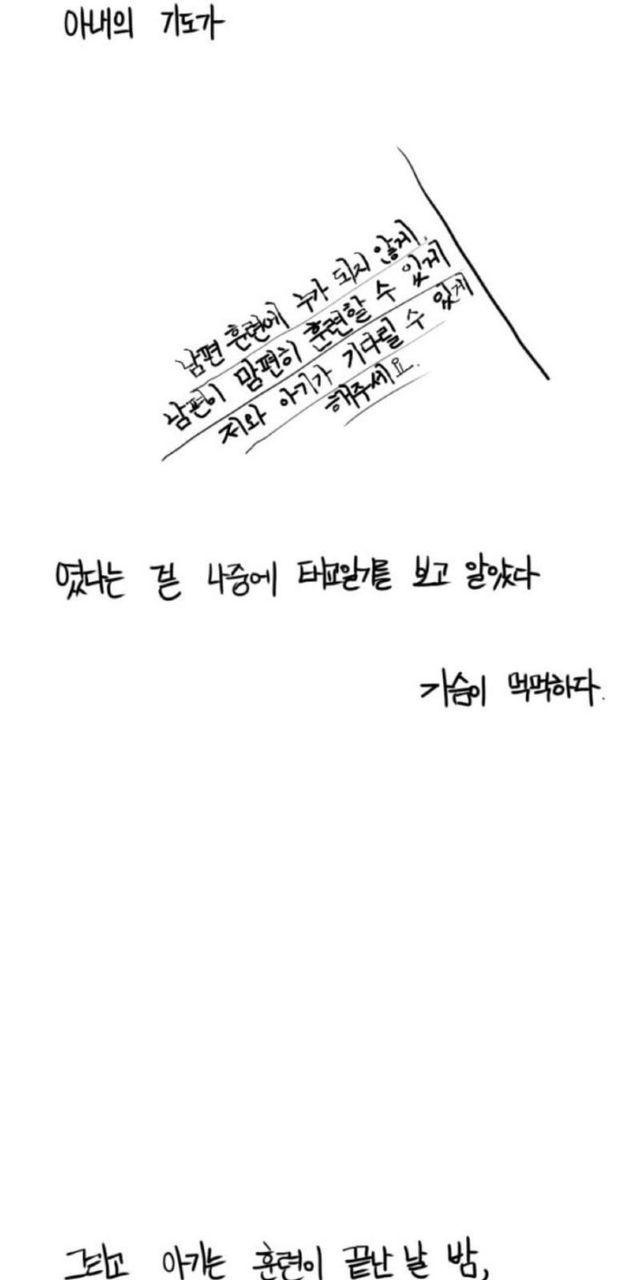 아내의 기도가
남편 훈련에 누가 되지 않게,
남편이 맘편히 훈련할 수 있게
저와 아기가 기다릴 수 있게
해주세요.
였다는 걸 나중에 태교일기를 보고 알았다
가슴이 먹먹하다.
그리고 아기는 훈련이 끝난 날 밤,